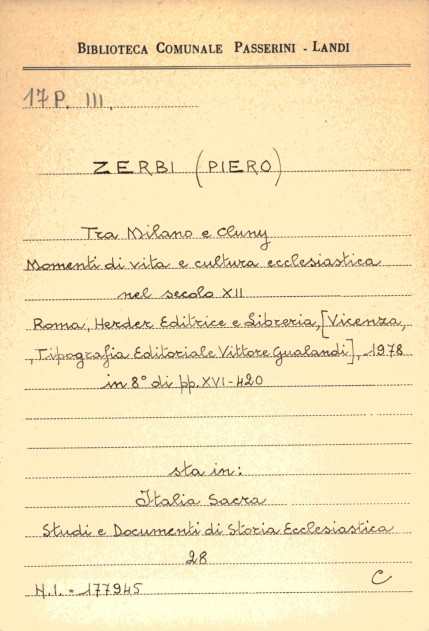 BIBLIOTECA COMUNALE PASSERINI - LANDI
17 P. III.
ZERBI (PIERO)
Tra Milano e Cluny
Momenti di vita e cultura ecclesiastica
nel secolo XII
Roma, Herder Editrice e Libreria, [Vicenza,
, Tipografia Editoriale Vittore Gualandi], 1978
in 8° di pp. XVI-420
sta in:
Italia Sacra
Studi e Documenti di Storia Ecclesiastica
28
N.I. = 177945
C